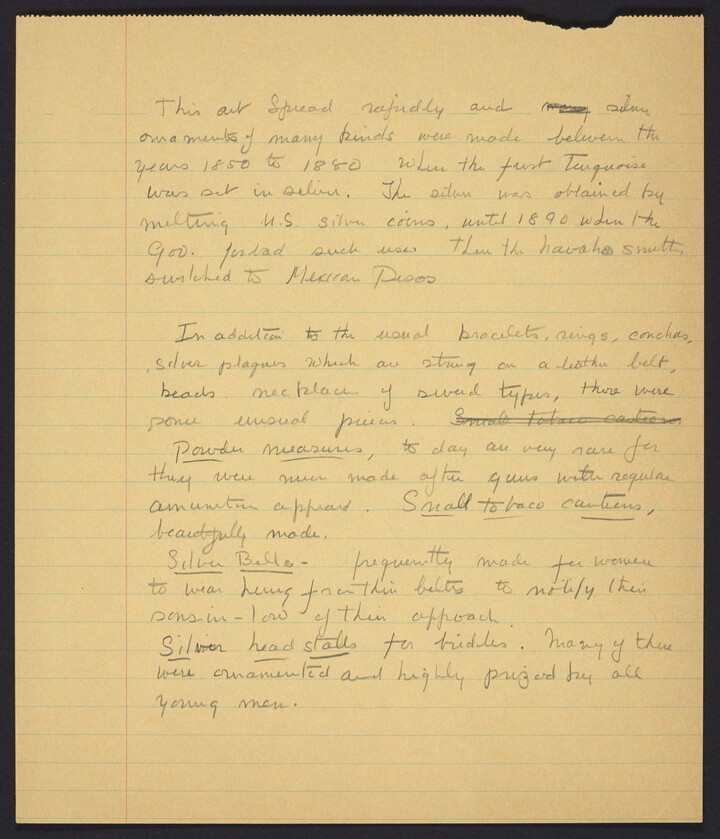 This art spread rapidly and many silver
ornaments of many kinds were made between the
years 1850 to 1880 when the first Turquoise
was set in silver. The silver was obtained by
melting U.S. silver coins, until 1890 when the
Gov. forbad such use. Then the navaho smiths
switched to Mexican Pesos
In addition to the usual bracelets, rings, conchas,
silver plaques which are strung on a leather belt,
beads necklaces of several types, there were
some unusual pieces. Small tobaco canteens
Powder measures, to day are very rare for
they were never made after guns with regular
amunition appeard. Small tobaco canteens,
beautifully made.
Silver Bells - frequently made for women
to wear hung from their belts to notify their
sons-in-law of their approach
Silver head stalls for bridles. Many of these
were ornamented and highly prized by all
young men.